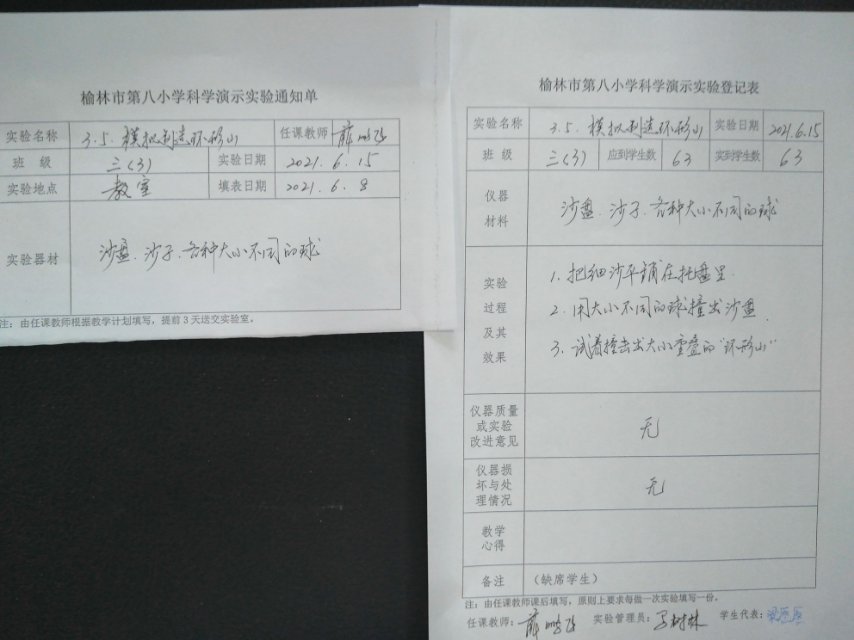 榆林市第八小学科学演示实验通知单
实验名称 3.5.模拟制造环形山 任课教师 薛鹏飞
班 级 三(3) 实验日期 2021.6.15
实验地点 教室 填表日期 2021.6.8
实验器材 沙盘.沙子.各种大小不同的球
注：由任课教师根据教学计划填写，提前3天送交实验室。
榆林市第八小学科学演示实验登记表
实验名称 3.5.模拟制造环形山 实验日期 2021.6.15
班 级 三(3) 应到学生数 63 实到学生数 63
仪器
材料
沙盘.沙子.各种大小不同的球
实验
过程
及其
效果
1.把细沙平铺在托盘里.
2.用大小不同的球撞出沙盘.
3.试着撞击出大小重叠的"环形山"
仪器质量
或实验
改进意见
无
仪器损
坏与处
理情况
无
教学
心得
备注 （缺席学生）
注：由任课教师课后填写，原则上要求每做一次实验填写一份。
任课教师：薛鹏飞 实验管理员： 学生代表：